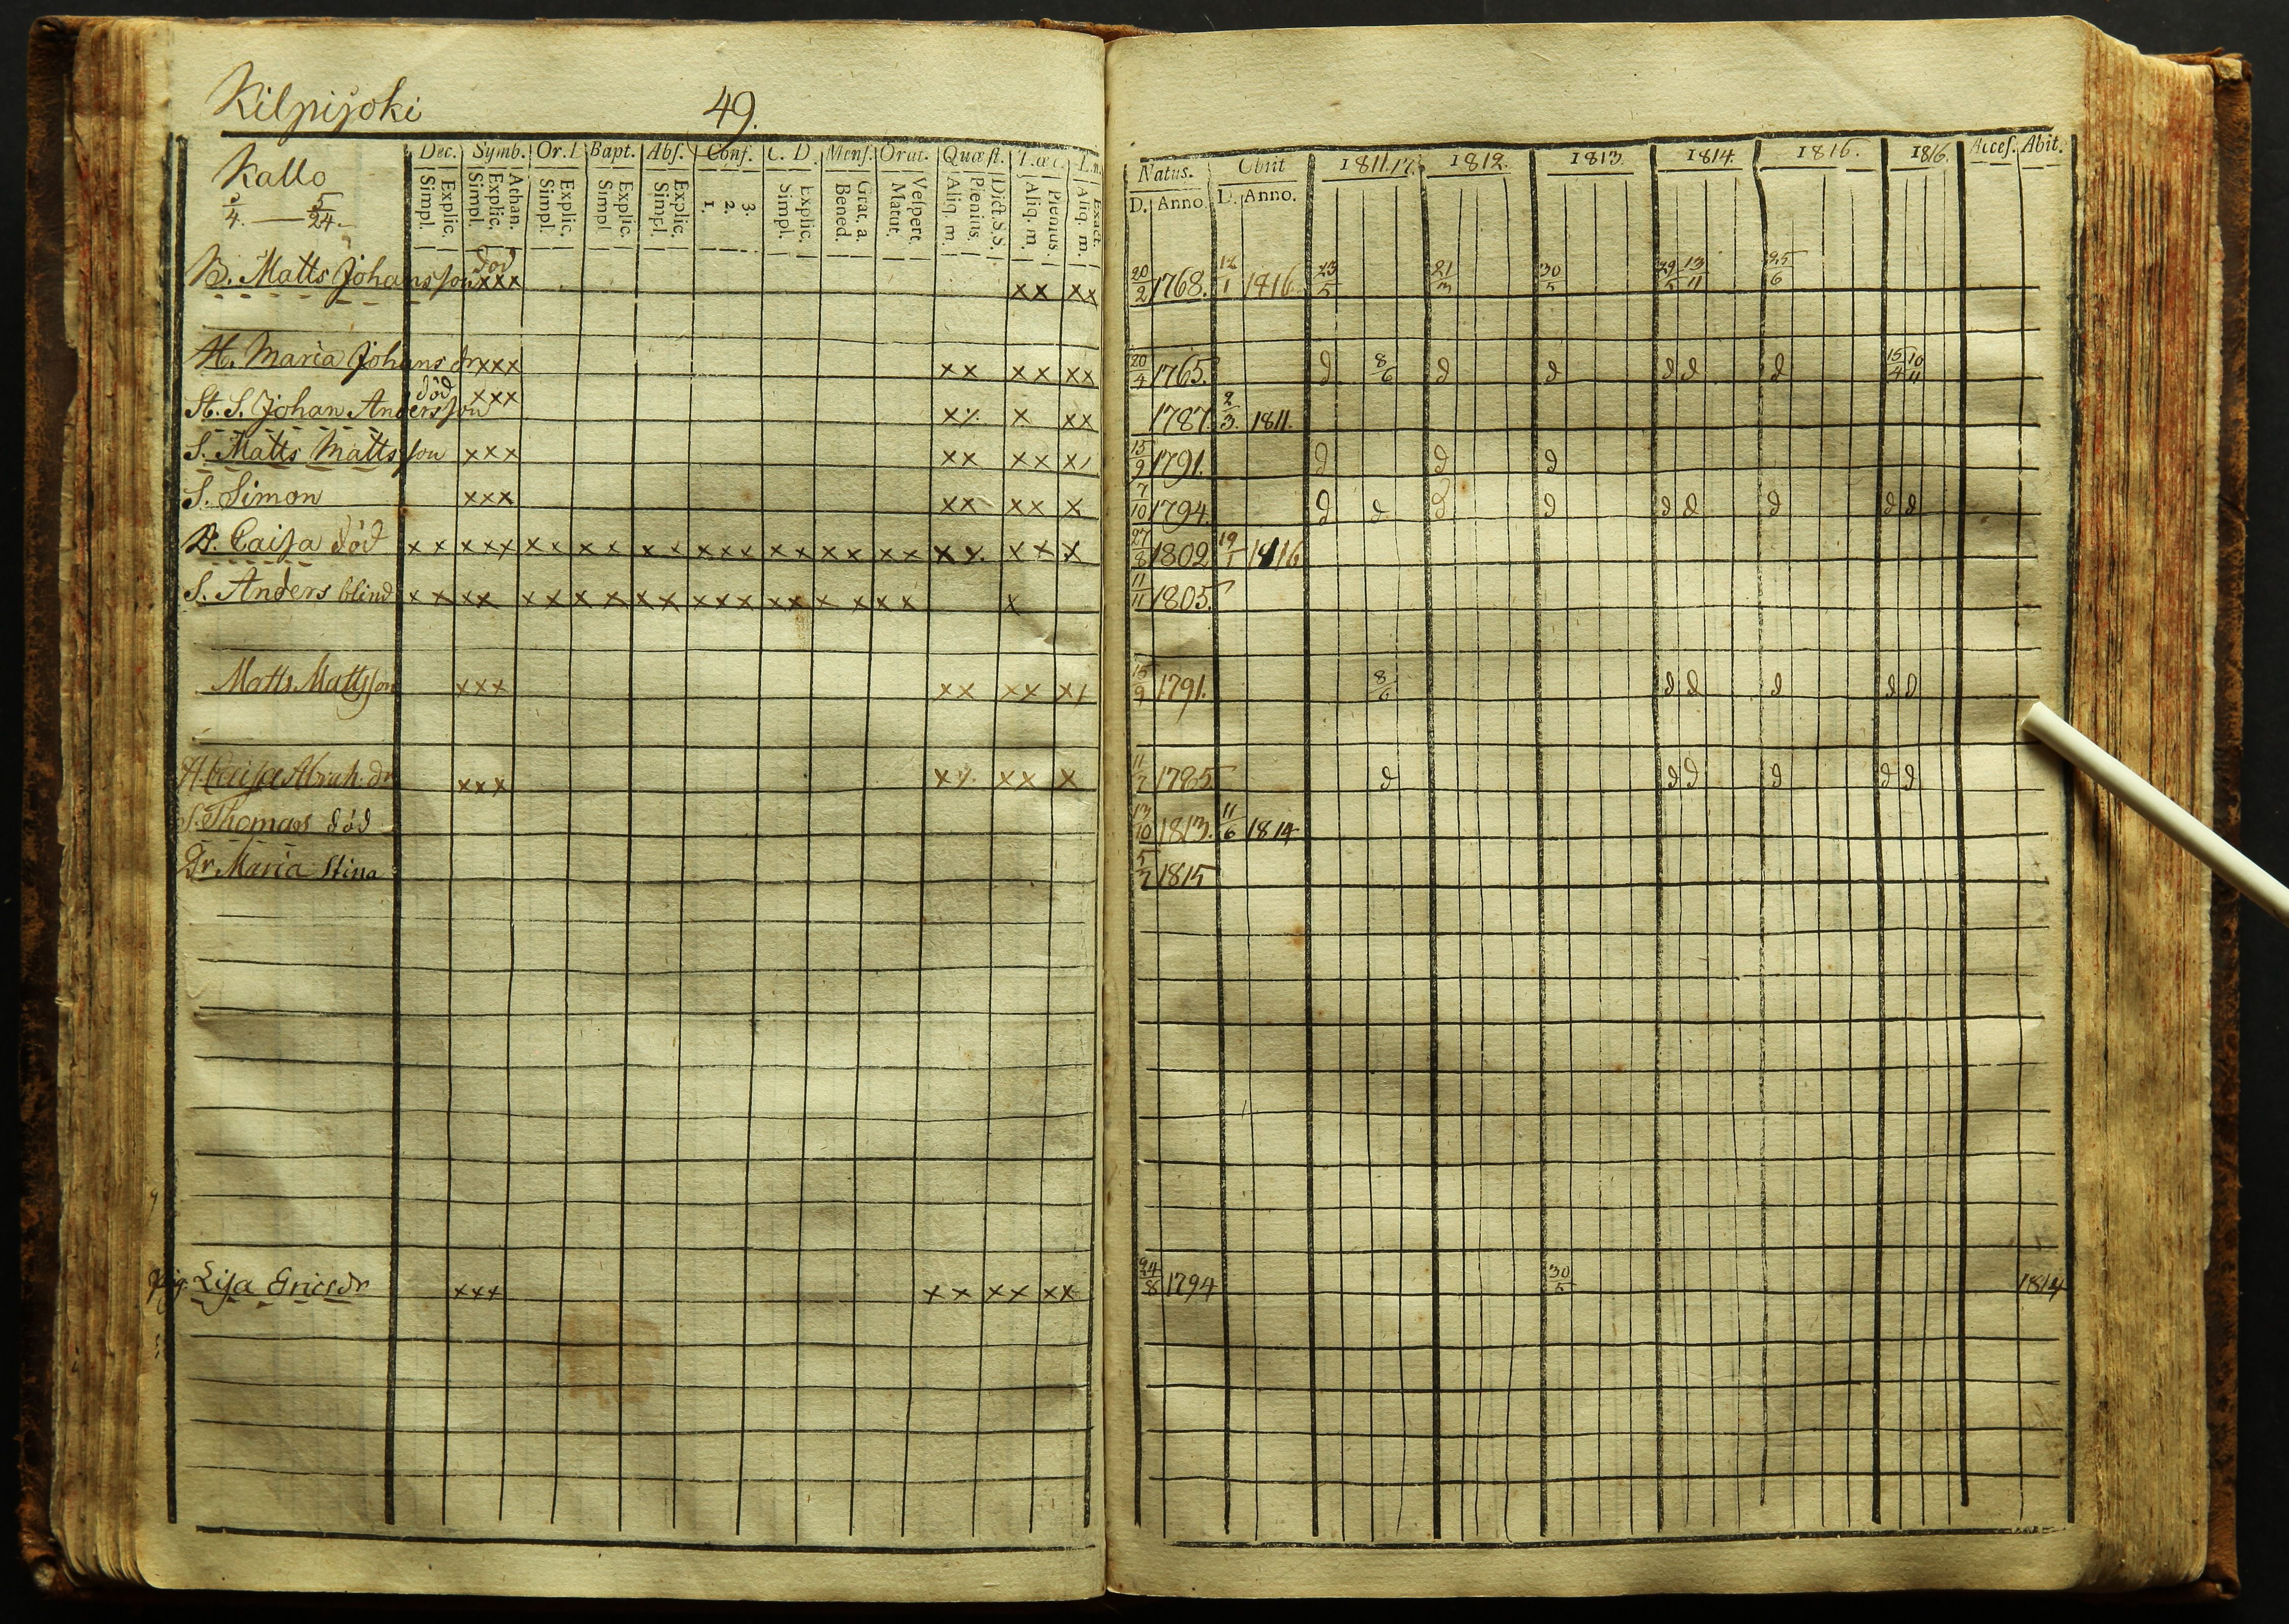 Kilpijoki 49.
Kallo
3/4. — 5/24.
Dec. Symb. Or. D Bapt. Abs. Conf. C. D. Mens. Orat. Quæst.
Simpl. Explic. Simpl. Explic. Athan. Simpl. Explic. Simpl. Explic. Simpl. Explic. 1. 2. 3. Simpl. Explic. Bened. Grat. a. Matut. Vespert. Aliq. m. Plenius. Dict. S.S. Aliq. m. Plenius. Aliq. m. Exact.
Natus. Obiit 1811.17. 1812. 1813. 1814. 1816. 1816. Acces. Abit.
D. Anno. D. Anno.
B. Matts Johansson död xxx xx xx 20/2 1768. 12/1 1816 23/5 21/3 30/5 29/5 13/11 25/6
H. Maria Johans dr xxx xx xx xx 20/4 1765. d 8/6 d d d d d 15/4 10/11
St. S. Johan Andersson död xxx x٪ x xx 1787. 2/3. 1811.
S. Matts Mattsson xxx xx xx x 15/9 1791. d d d
S. Simon xxx xx xx x 7/10 1794. d d d d d d d d d
D. Caisa död x x xxx xx xx xx xxx xx xx xx xx xx x 27/8 1802 19/1 1816
S. Anders blind x x xx xx xx xx xxx xx x xxx x 11/11 1805.
Matts Mattsson xxx xx xx x 15/9 1791. 8/6 d d d d d
H. Caisa Abrah. dr xxx xx xx x 11/7 1785 d d d d d d
S. Thomas död 13/10 1813. 11/6 1814
Dr. Maria Stina 5/7 1815
Pig. Lisa Ericsdr xxx xx xx xx 24/8 1794 30/5 1814